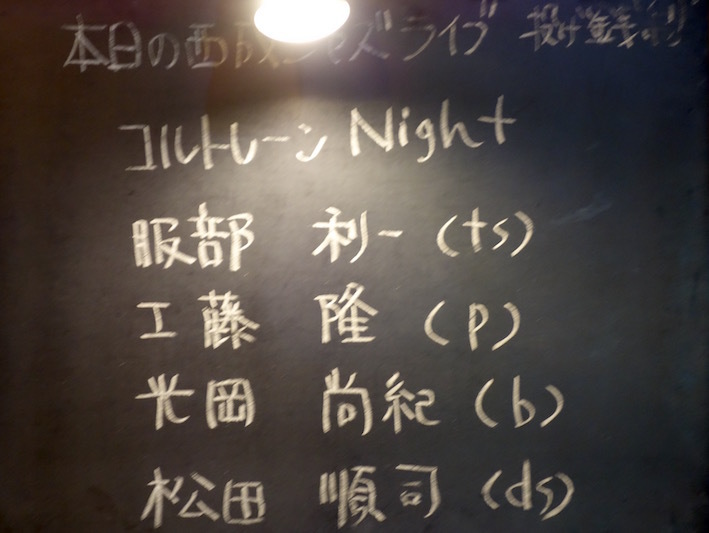 本日の西成ジャズライブ 投げ銭制
コルトレーン Night
服部 利一 (ts)
工藤 隆 (p)
光岡 尚紀 (b)
松田 順司 (ds)